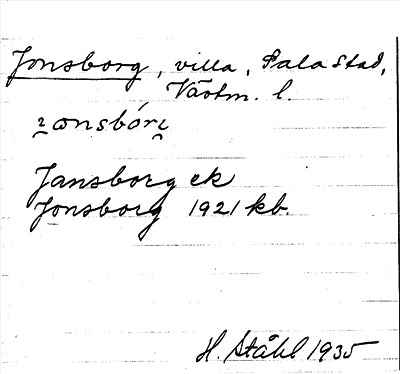 Jonsborg, villa, Sala stad,
Västm. l.
Jansborg ek
Jonsborg 1921 kb.
H. Ståhl 1935